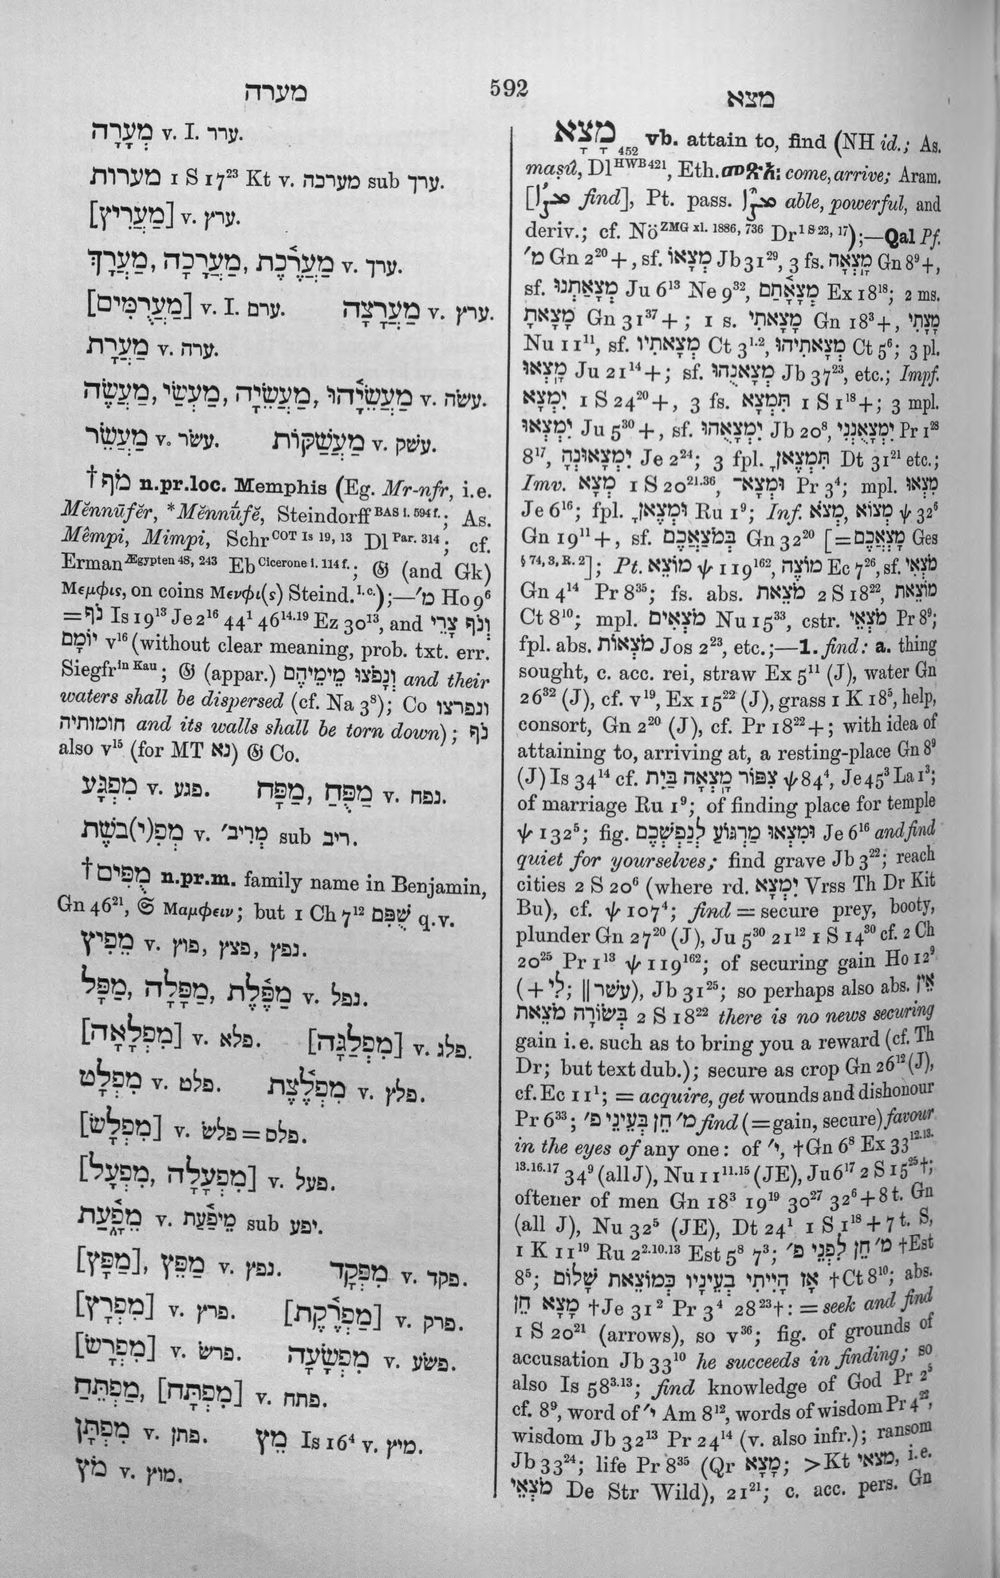 מערה
592
מצא
מְעָרָה v. I. ערר.
מערות 1 S 17²³ Kt v. מערכה sub ערך.
[מַעֲרִיץ] v. ערץ.
מַעֲרֶכֶת, מַעֲרָכָה, מַעֲרָךְ v. ערך.
[מַעֲרֻמִּים] v. I. ערם. מַעֲרָצָה v. ערץ.
מַעֲרָת v. ערה.
מַעֲשֵׂיָהוּ, מַעֲשֵׂיָה, מַעְשַׂי, מַעֲשֶׂה v. עשׂה.
מַעֲשֵׂר v. עשׂר. מַעֲשַׁקּוֹת v. עשׁק.
† מֹף n.pr.loc. Memphis (Eg. Mr-nfr, i.e.
Mĕnnūfĕr, *Mĕnnūfĕ, Steindorff BAS I. 594 f.; As.
Mêmpi, Mimpi, Schr COT Is 19, 13 Dl Par. 314; cf.
Erman Ægypten 48, 243 Eb Cicerone I. 114 f.; 𝔊 (and Gk)
Μεμφις, on coins Μενφι(ς) Steind. l.c.);—מ׳ Ho 9⁶
= נֹף Is 19¹³ Je 2¹⁶ 44¹ 46¹⁴·¹⁹ Ez 30¹³, and וְנֹף צָרֵי
יוֹמָם v¹⁶ (without clear meaning, prob. txt. err.
Siegfr in Kau; 𝔊 (appar.) וְנָפֹצוּ מֵימֵיהֶם and their
waters shall be dispersed (cf. Na 3⁸); Co ונפרצו
חומותיה and its walls shall be torn down); נֹף
also v¹⁵ (for MT נא) 𝔊 Co.
מִפְגָּע v. פגע. מַפָּח, מַפֻּחַ v. נפח.
מְפִ(י)בֹשֶׁת v. מְרִיב׳ sub ריב.
† מֻפִּים n.pr.m. family name in Benjamin,
Gn 46²¹, 𝔖 Μαμφειν; but 1 Ch 7¹² שֻׁפִּם q.v.
מֵפִיץ v. פוץ, פצץ, נפץ.
מַפֶּלֶת, מַפָּלָה, מַפָּל v. נפל.
[מִפְלָאָה] v. פלא. [מִפְלַגָּה] v. פלג.
מִפְלָט v. פלט. מִפְלֶצֶת v. פלץ.
[מִפְלָשׂ] v. פלשׂ = פלס.
[מִפְעָלָה, מִפְעָל] v. פעל.
מֵפָעַת v. מֵיפַעַת sub יפע.
[מַפָּץ], מַפֵּץ v. נפץ. מִפְקָד v. פקד.
[מִפְרָץ] v. פרץ. [מַפְרֶקֶת] v. פרק.
[מִפְרָשׂ] v. פרשׂ. מִפְשָׂעָה v. פשׂע.
מַפְתֵּחַ, [מִפְתָּח] v. פתח.
מִפְתָּן v. פתן. מֵץ Is 16⁴ v. מיץ.
מֹץ v. מוץ.
מָצָא 452 vb. attain to, find (NH id.; As.
maṣû, Dl HWB 421, Eth. come, arrive; Aram.
find], Pt. pass. able, powerful, and
deriv.; cf. Nö ZMG xl. 1886, 736 Dr 1 S 23, 17);—Qal Pf.
מ׳ Gn 2²⁰ +, sf. מְצָאוֹ Jb 31²⁹, 3 fs. מָצְאָה Gn 8⁹ +,
sf. מְצָאַתְנוּ Ju 6¹³ Ne 9³², מְצָאָתַם Ex 18¹⁸; 2 ms.
מָצָאתָ Gn 31³⁷ + ; 1 s. מָצָאתִי Gn 18³ +, מָצָתִי
Nu 11¹¹, sf. מְצָאתִיו Ct 3¹·², מְצָאתִיהוּ Ct 5⁶; 3 pl.
מָצְאוּ Ju 21¹⁴ + ; sf. מְצָאנֻהוּ Jb 37²³, etc.; Impf.
יִמְצָא 1 S 24²⁰ +, 3 fs. תִּמְצָא 1 S 1¹⁸ +; 3 mpl.
יִמְצְאוּ Ju 5³⁰ +, sf. יִמְצָאֻהוּ Jb 20⁸, יִמְצָאֻנְנִי Pr 1²⁸
8¹⁷, יִמְצָאוּנְהָ Je 2²⁴; 3 fpl. תִּמְצֶאןָ Dt 31²¹ etc.;
Imv. מְצָא 1 S 20²¹·³⁶, וּמְצָא־ Pr 3⁴; mpl. מִצְאוּ
Je 6¹⁶; fpl. וּמְצֶאןָ Ru 1⁹; Inf. מְצֹא, מְצוֹא ψ 32⁶
Gn 19¹¹ +, sf. בְּמֹצַאֲכֶם Gn 32²⁰ [= מָצְאֲכֶם Ges
§ 74, 3, R. 2]; Pt. מוֹצֵא ψ 119¹⁶², מוֹצֶה Ec 7²⁶, sf. מֹצְאִי
Gn 4¹⁴ Pr 8³⁵; fs. abs. מֹצֵאת 2 S 18²², מוֹצְאֵת
Ct 8¹⁰; mpl. מֹצְאִים Nu 15³³, cstr. מֹצְאֵי Pr 8⁹;
fpl. abs. מֹצְאוֹת Jos 2²³, etc.;—1. find: a. thing
sought, c. acc. rei, straw Ex 5¹¹ (J), water Gn
26³² (J), cf. v¹⁹, Ex 15²² (J), grass 1 K 18⁵, help,
consort, Gn 2²⁰ (J), cf. Pr 18²² +; with idea of
attaining to, arriving at, a resting-place Gn 8⁹
(J) Is 34¹⁴ cf. צִפּוֹר מָצְאָה בַיִת ψ 84⁴, Je 45³ La 1³;
of marriage Ru 1⁹; of finding place for temple
ψ 132⁵; fig. וּמִצְאוּ מַרְגּוֹעַ לְנַפְשְׁכֶם Je 6¹⁶ and find
quiet for yourselves; find grave Jb 3²²; reach
cities 2 S 20⁶ (where rd. יִמְצָא Vrss Th Dr Kit
Bu), cf. ψ 107⁴; find = secure prey, booty,
plunder Gn 27²⁰ (J), Ju 5³⁰ 21¹² 1 S 14³⁰ cf. 2 Ch
20²⁵ Pr 1¹³ ψ 119¹⁶²; of securing gain Ho 12⁹
(+ לִי; ‖ עשׁר), Jb 31²⁵; so perhaps also abs. אֵין
בְּשׂוֹרָה מֹצֵאת 2 S 18²² there is no news securing
gain i.e. such as to bring you a reward (cf. Th
Dr; but text dub.); secure as crop Gn 26¹² (J),
cf. Ec 11¹; = acquire, get wounds and dishonour
Pr 6³³; מ׳ חֵן בְּעֵינֵי פ׳ find (= gain, secure) favour
in the eyes of any one: of י׳, † Gn 6⁸ Ex 33¹²·¹³·
¹³·¹⁶·¹⁷ 34⁹ (all J), Nu 11¹¹·¹⁵ (JE), Ju 6¹⁷ 2 S 15²⁵ †;
oftener of men Gn 18³ 19¹⁹ 30²⁷ 32⁶ + 8 t. Gn
(all J), Nu 32⁵ (JE), Dt 24¹ 1 S 1¹⁸ + 7 t. S,
1 K 11¹⁹ Ru 2²·¹⁰·¹³ Est 5⁸ 7³; מ׳ חֵן לִפְנֵי פ׳ † Est
8⁵; אָז הָיִיתִי בְעֵינָיו כְּמוֹצְאֵת שָׁלוֹם † Ct 8¹⁰; abs.
מָצָא חֵן † Je 31² Pr 3⁴ 28²³ †: = seek and find
1 S 20²¹ (arrows), so v³⁶; fig. of grounds of
accusation Jb 33¹⁰ he succeeds in finding; so
also Is 58³·¹³; find knowledge of God Pr 2⁵
cf. 8⁹, word of י׳ Am 8¹², words of wisdom Pr 4²²,
wisdom Jb 32¹³ Pr 24¹⁴ (v. also infr.); ransom
Jb 33²⁴; life Pr 8³⁵ (Qr מָצָא; > Kt מצאי, i.e.
מֹצְאֵי De Str Wild), 21²¹; c. acc. pers. Gn